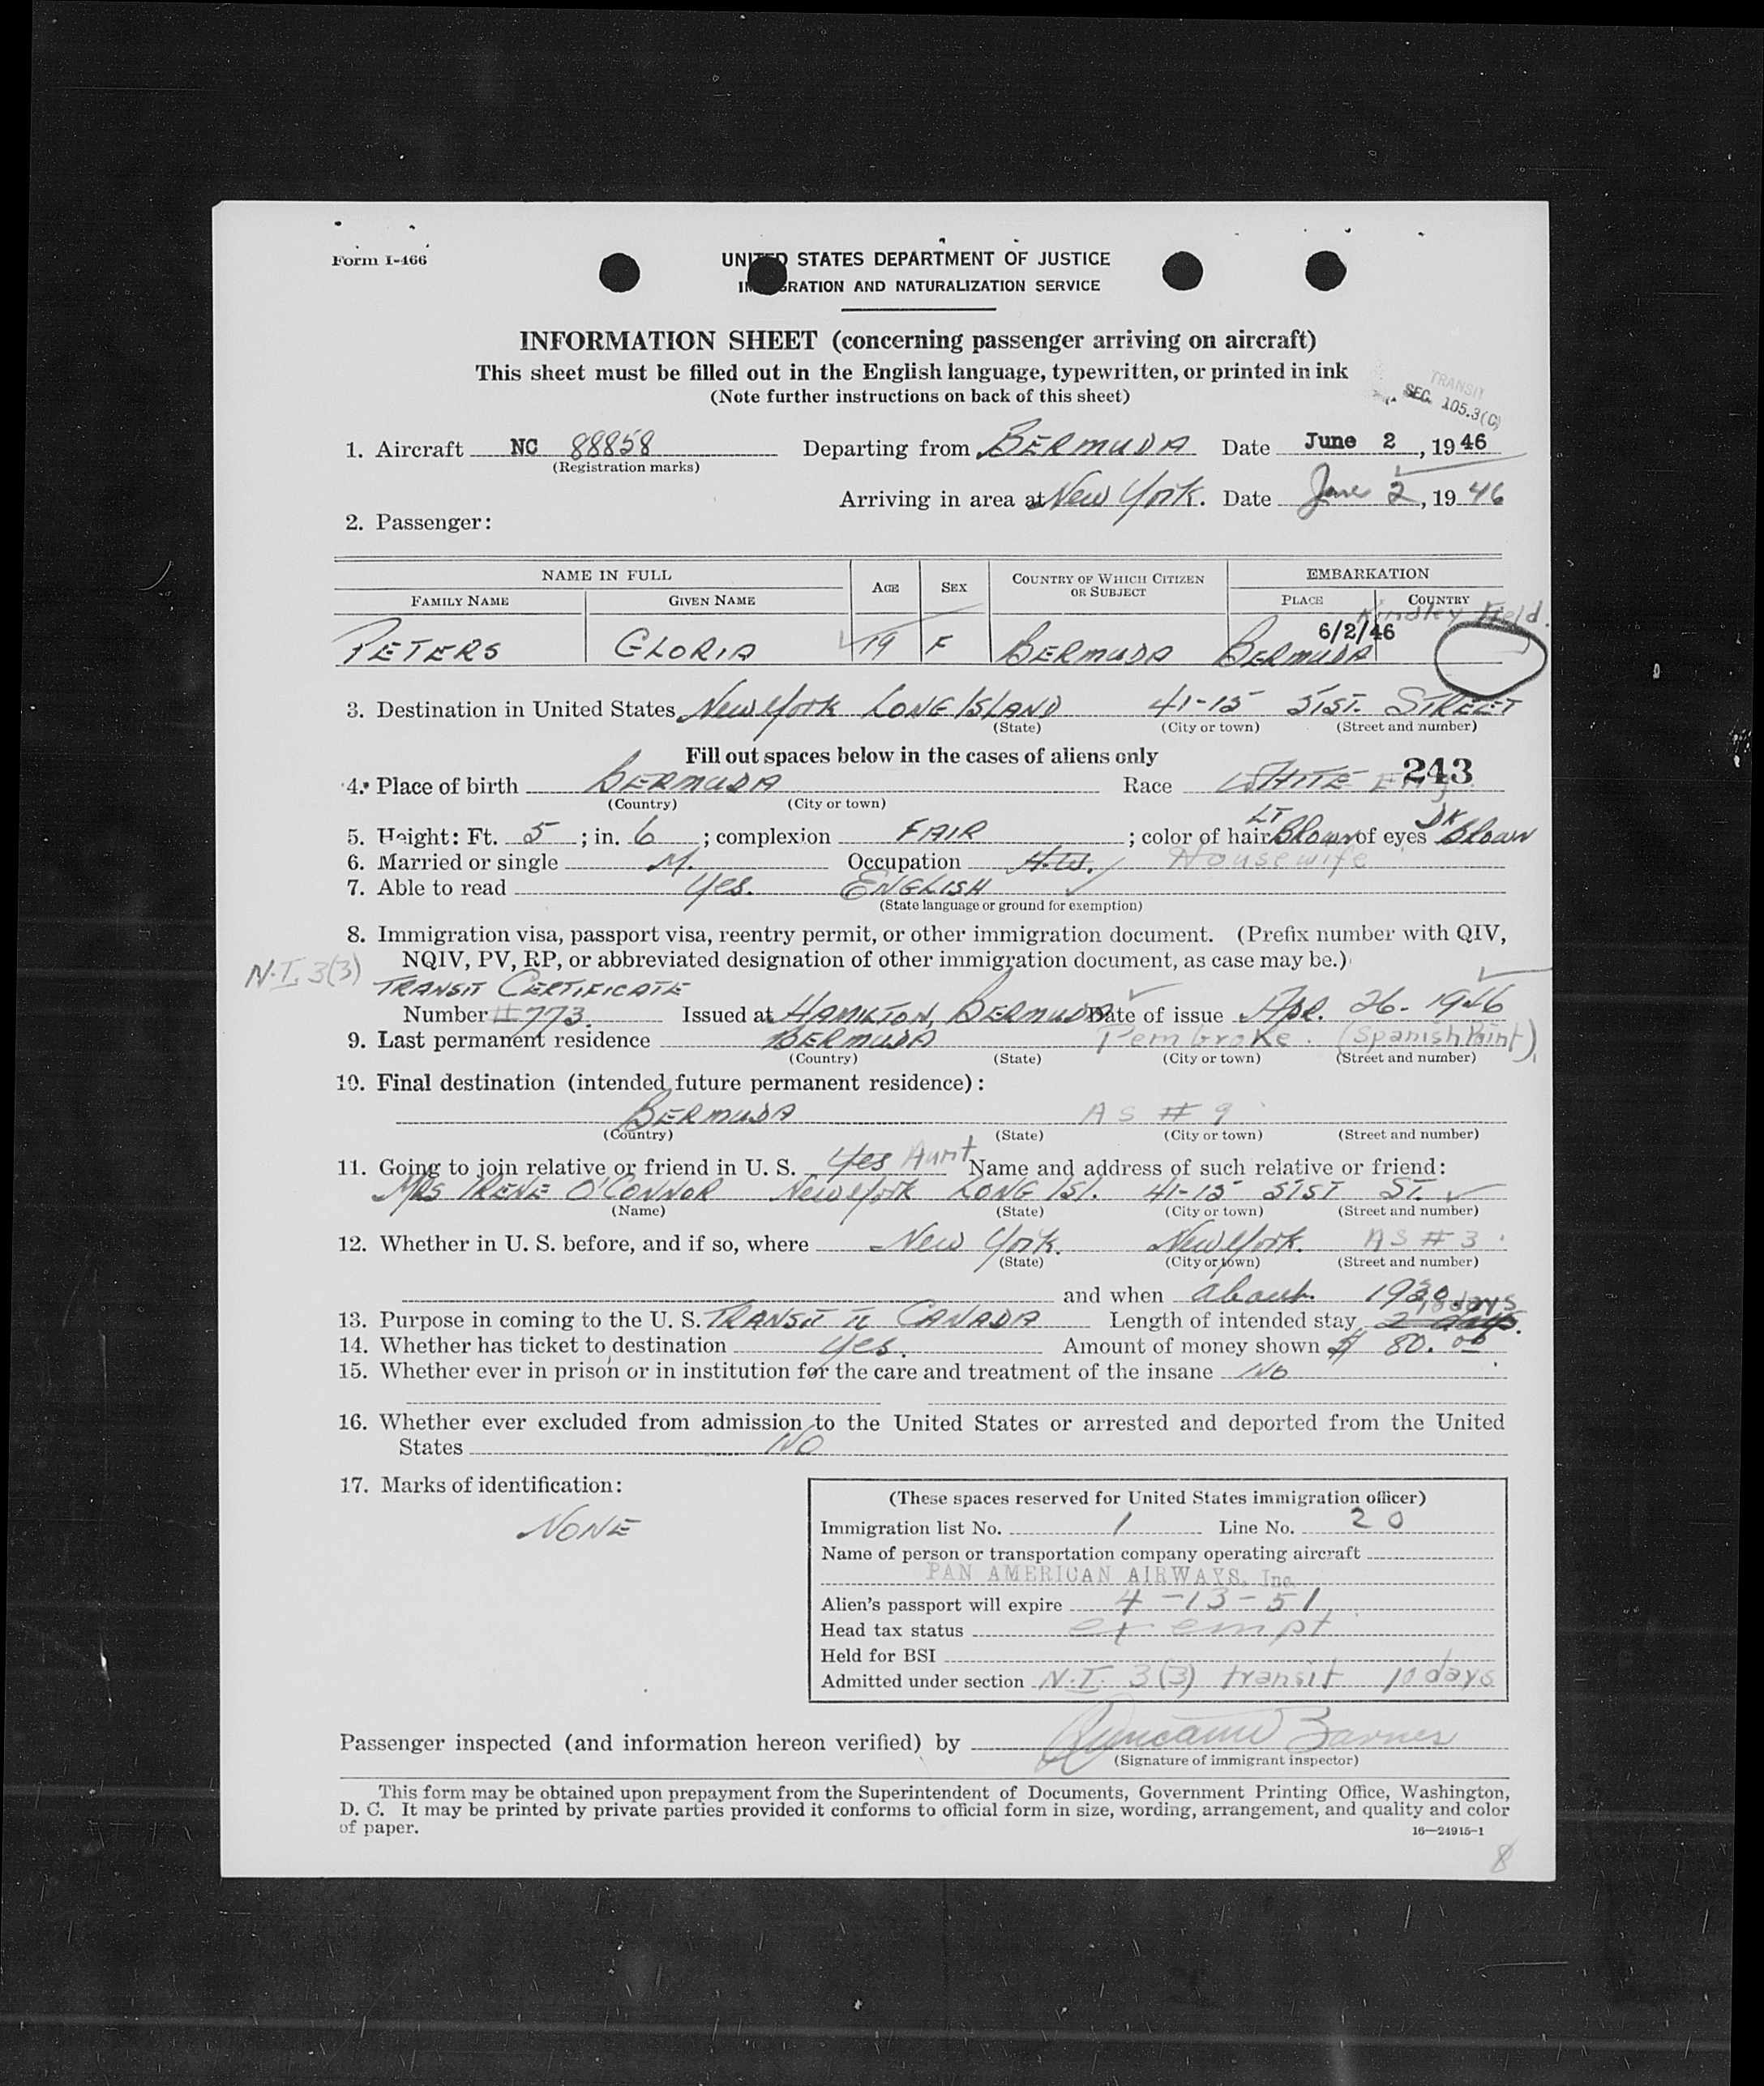 Form I-466
UNITED STATES DEPARTMENT OF JUSTICE
IMMIGRATION AND NATURALIZATION SERVICE
INFORMATION SHEET (concerning passenger arriving on aircraft)
This sheet must be filled out in the English language, typewritten, or printed in ink
(Note further instructions on back of this sheet)
TRANSIT
SEC. 105.3(C)
1. Aircraft NC 88858 Departing from BERMUDA Date June 2, 1946
(Registration marks)
Arriving in area at New York. Date June 2, 1946
2. Passenger:
NAME IN FULL AGE SEX COUNTRY OF WHICH CITIZEN OR SUBJECT EMBARKATION
FAMILY NAME GIVEN NAME PLACE COUNTRY
Kindley Field.
6/2/46
PETERS GLORIA 19 F BERMUDA BERMUDA
3. Destination in United States New York LONG ISLAND 41-15 51ST. STREET
(State) (City or town) (Street and number)
Fill out spaces below in the cases of aliens only
243
4. Place of birth BERMUDA Race WHITE Eng
(Country) (City or town)
5. Height: Ft. 5; in. 6; complexion FAIR; color of hair LT Brown of eyes DK Brown
6. Married or single M. Occupation H.W. Housewife
7. Able to read Yes. ENGLISH
(State language or ground for exemption)
8. Immigration visa, passport visa, reentry permit, or other immigration document. (Prefix number with QIV,
NQIV, PV, RP, or abbreviated designation of other immigration document, as case may be.)
N.I. 3(3)
TRANSIT CERTIFICATE
Number #773. Issued at HAMILTON, BERMUDA Date of issue Apr. 26- 1946
9. Last permanent residence BERMUDA Pembroke. (Spanish Point)
(Country) (State) (City or town) (Street and number)
10. Final destination (intended future permanent residence):
BERMUDA AS # 9
(Country) (State) (City or town) (Street and number)
11. Going to join relative or friend in U. S. Yes Aunt Name and address of such relative or friend:
MRS IRENE O'CONNOR New York LONG ISL. 41-15 51ST ST.
(Name) (State) (City or town) (Street and number)
12. Whether in U. S. before, and if so, where New York. New York. AS # 3
(State) (City or town) (Street and number)
and when about 1930
10 days
13. Purpose in coming to the U. S. TRANSIT to CANADA Length of intended stay 2 days.
14. Whether has ticket to destination yes. Amount of money shown $ 80.00
15. Whether ever in prison or in institution for the care and treatment of the insane NO
16. Whether ever excluded from admission to the United States or arrested and deported from the United
States NO
17. Marks of identification:
NONE
(These spaces reserved for United States immigration officer)
Immigration list No. 1 Line No. 20
Name of person or transportation company operating aircraft
PAN AMERICAN AIRWAYS, Inc.
Alien's passport will expire 4-13-51
Head tax status exempt
Held for BSI
Admitted under section N.I. 3(3) transit 10 days
Passenger inspected (and information hereon verified) by
(Signature of immigrant inspector)
This form may be obtained upon prepayment from the Superintendent of Documents, Government Printing Office, Washington,
D. C. It may be printed by private parties provided it conforms to official form in size, wording, arrangement, and quality and color
of paper.
16—24915-1
8